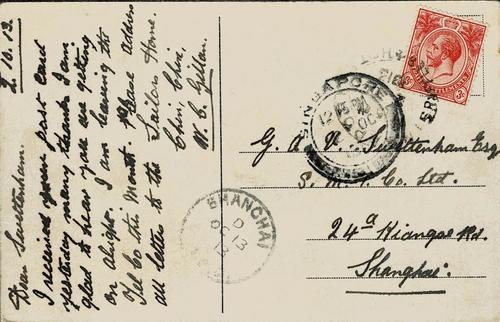 2.10.13.
Dear Swettenham.
I received your post card
yesterday many thanks I am
glad to hear you are getting
on Alright. I am leaving the
Tel Co this Month. Please Address
all letter to the Sailors Home.
W. C. Gillan.
SINGAPORE
12
OC
SHANGHAI
D
OC 13
13
G. A. V. Swettenham Esq
Co. Ltd.
24a Kiangse Rd.
Shanghai.